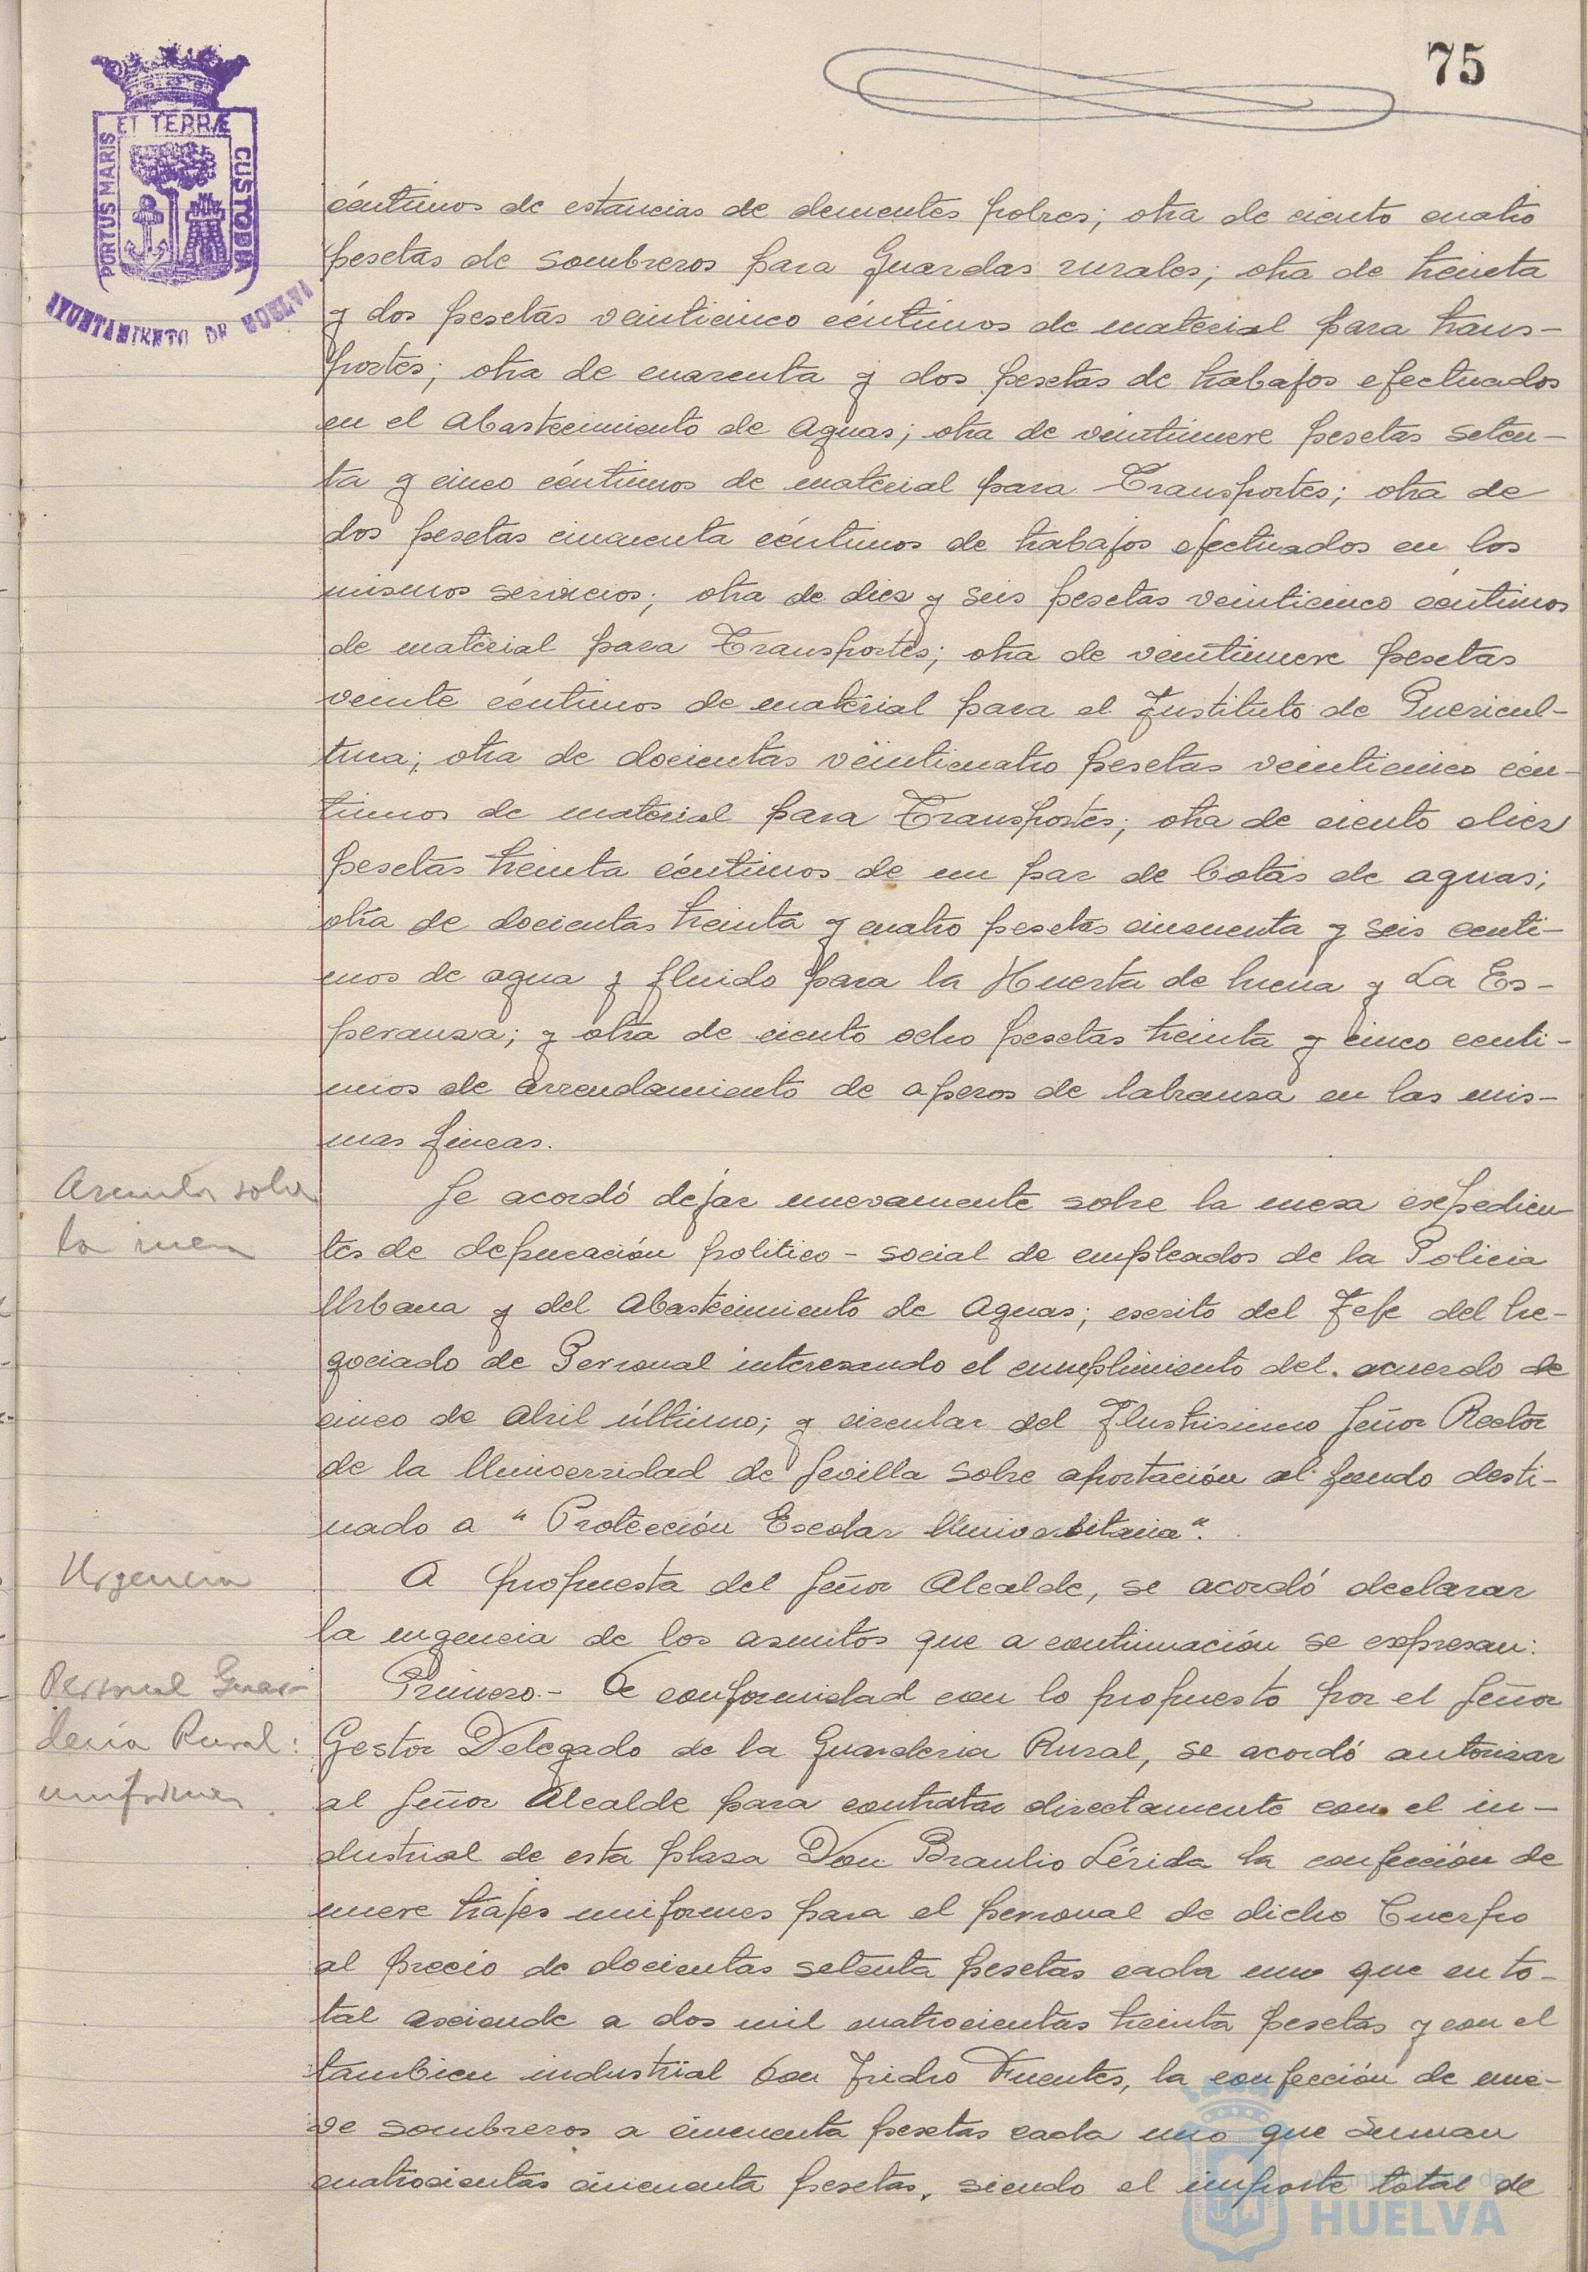 75
PORTUS MARIS
ET TERRÆ
CUSTODIA
AYUNTAMIENTO DE HUELVA
céntimos de estancias de dementes pobres; otra de ciento cuatro
pesetas de sombreros para Guardas rurales; otra de treinta
y dos pesetas veinticinco céntimos de material para trans-
portes; otra de cuarenta y dos pesetas de trabajos efectuados
en el Abastecimiento de Aguas; otra de veintinueve pesetas seten-
ta y cinco céntimos de material para Transportes; otra de
dos pesetas cincuenta céntimos de trabajos efectuados en los
mismos servicios; otra de diez y seis pesetas veinticinco céntimos
de material para Transportes; otra de veintinueve pesetas
veinte céntimos de material para el Instituto de Puericul-
tura; otra de docientas veinticuatro pesetas veinticinco cén-
timos de material para Transportes; otra de ciento diez
pesetas treinta céntimos de un par de botas de aguas;
otra de docientas treinta y cuatro pesetas cincuenta y seis centi-
mos de agua y fluido para la Huerta de Mena y La Es-
peranza; y otra de ciento ocho pesetas treinta y cinco centi-
mos de arrendamiento de aperos de labranza en las mis-
mas fincas.
Asuntos sobre
la mesa
Se acordó dejar nuevamente sobre la mesa expedien-
tes de depuración politico-social de empleados de la Policia
Urbana y del Abastecimiento de Aguas; escrito del Jefe del Ne-
gociado de Personal interesando el cumplimiento del acuerdo de
cinco de Abril último; y circular del Ilustrisimo Señor Rector
de la Universidad de Sevilla sobre aportación al fondo desti-
nado a "Protección Escolar Universitaria".
Urgencia
A propuesta del Señor Alcalde, se acordó declarar
la urgencia de los asuntos que a continuación se expresan:
Personal Guar-
deria Rural:
uniformes.
Primero.- De conformidad con lo propuesto por el Señor
Gestor Delegado de la Guarderia Rural, se acordó autorizar
al Señor Alcalde para contratar directamente con el in-
dustrial de esta plaza Don Braulio Lérida la confección de
nueve trajes uniformes para el personal de dicho Cuerpo
al precio de docientas setenta pesetas cada uno que en to-
tal asciende a dos mil cuatrocientas treinta pesetas y con el
tambien industrial Don Isidro Fuentes, la confección de nue-
ve sombreros a cincuenta pesetas cada uno que suman
cuatrocientas cincuenta pesetas, siendo el importe total de
Ayuntamiento de
HUELVA